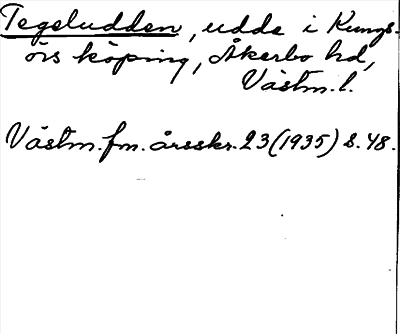 Tegeludden, udde i Kungs-
örs köping, Åkerbo hd,
Västm. l.
Västm. fm. årsskr. 23 (1935) s. 48.